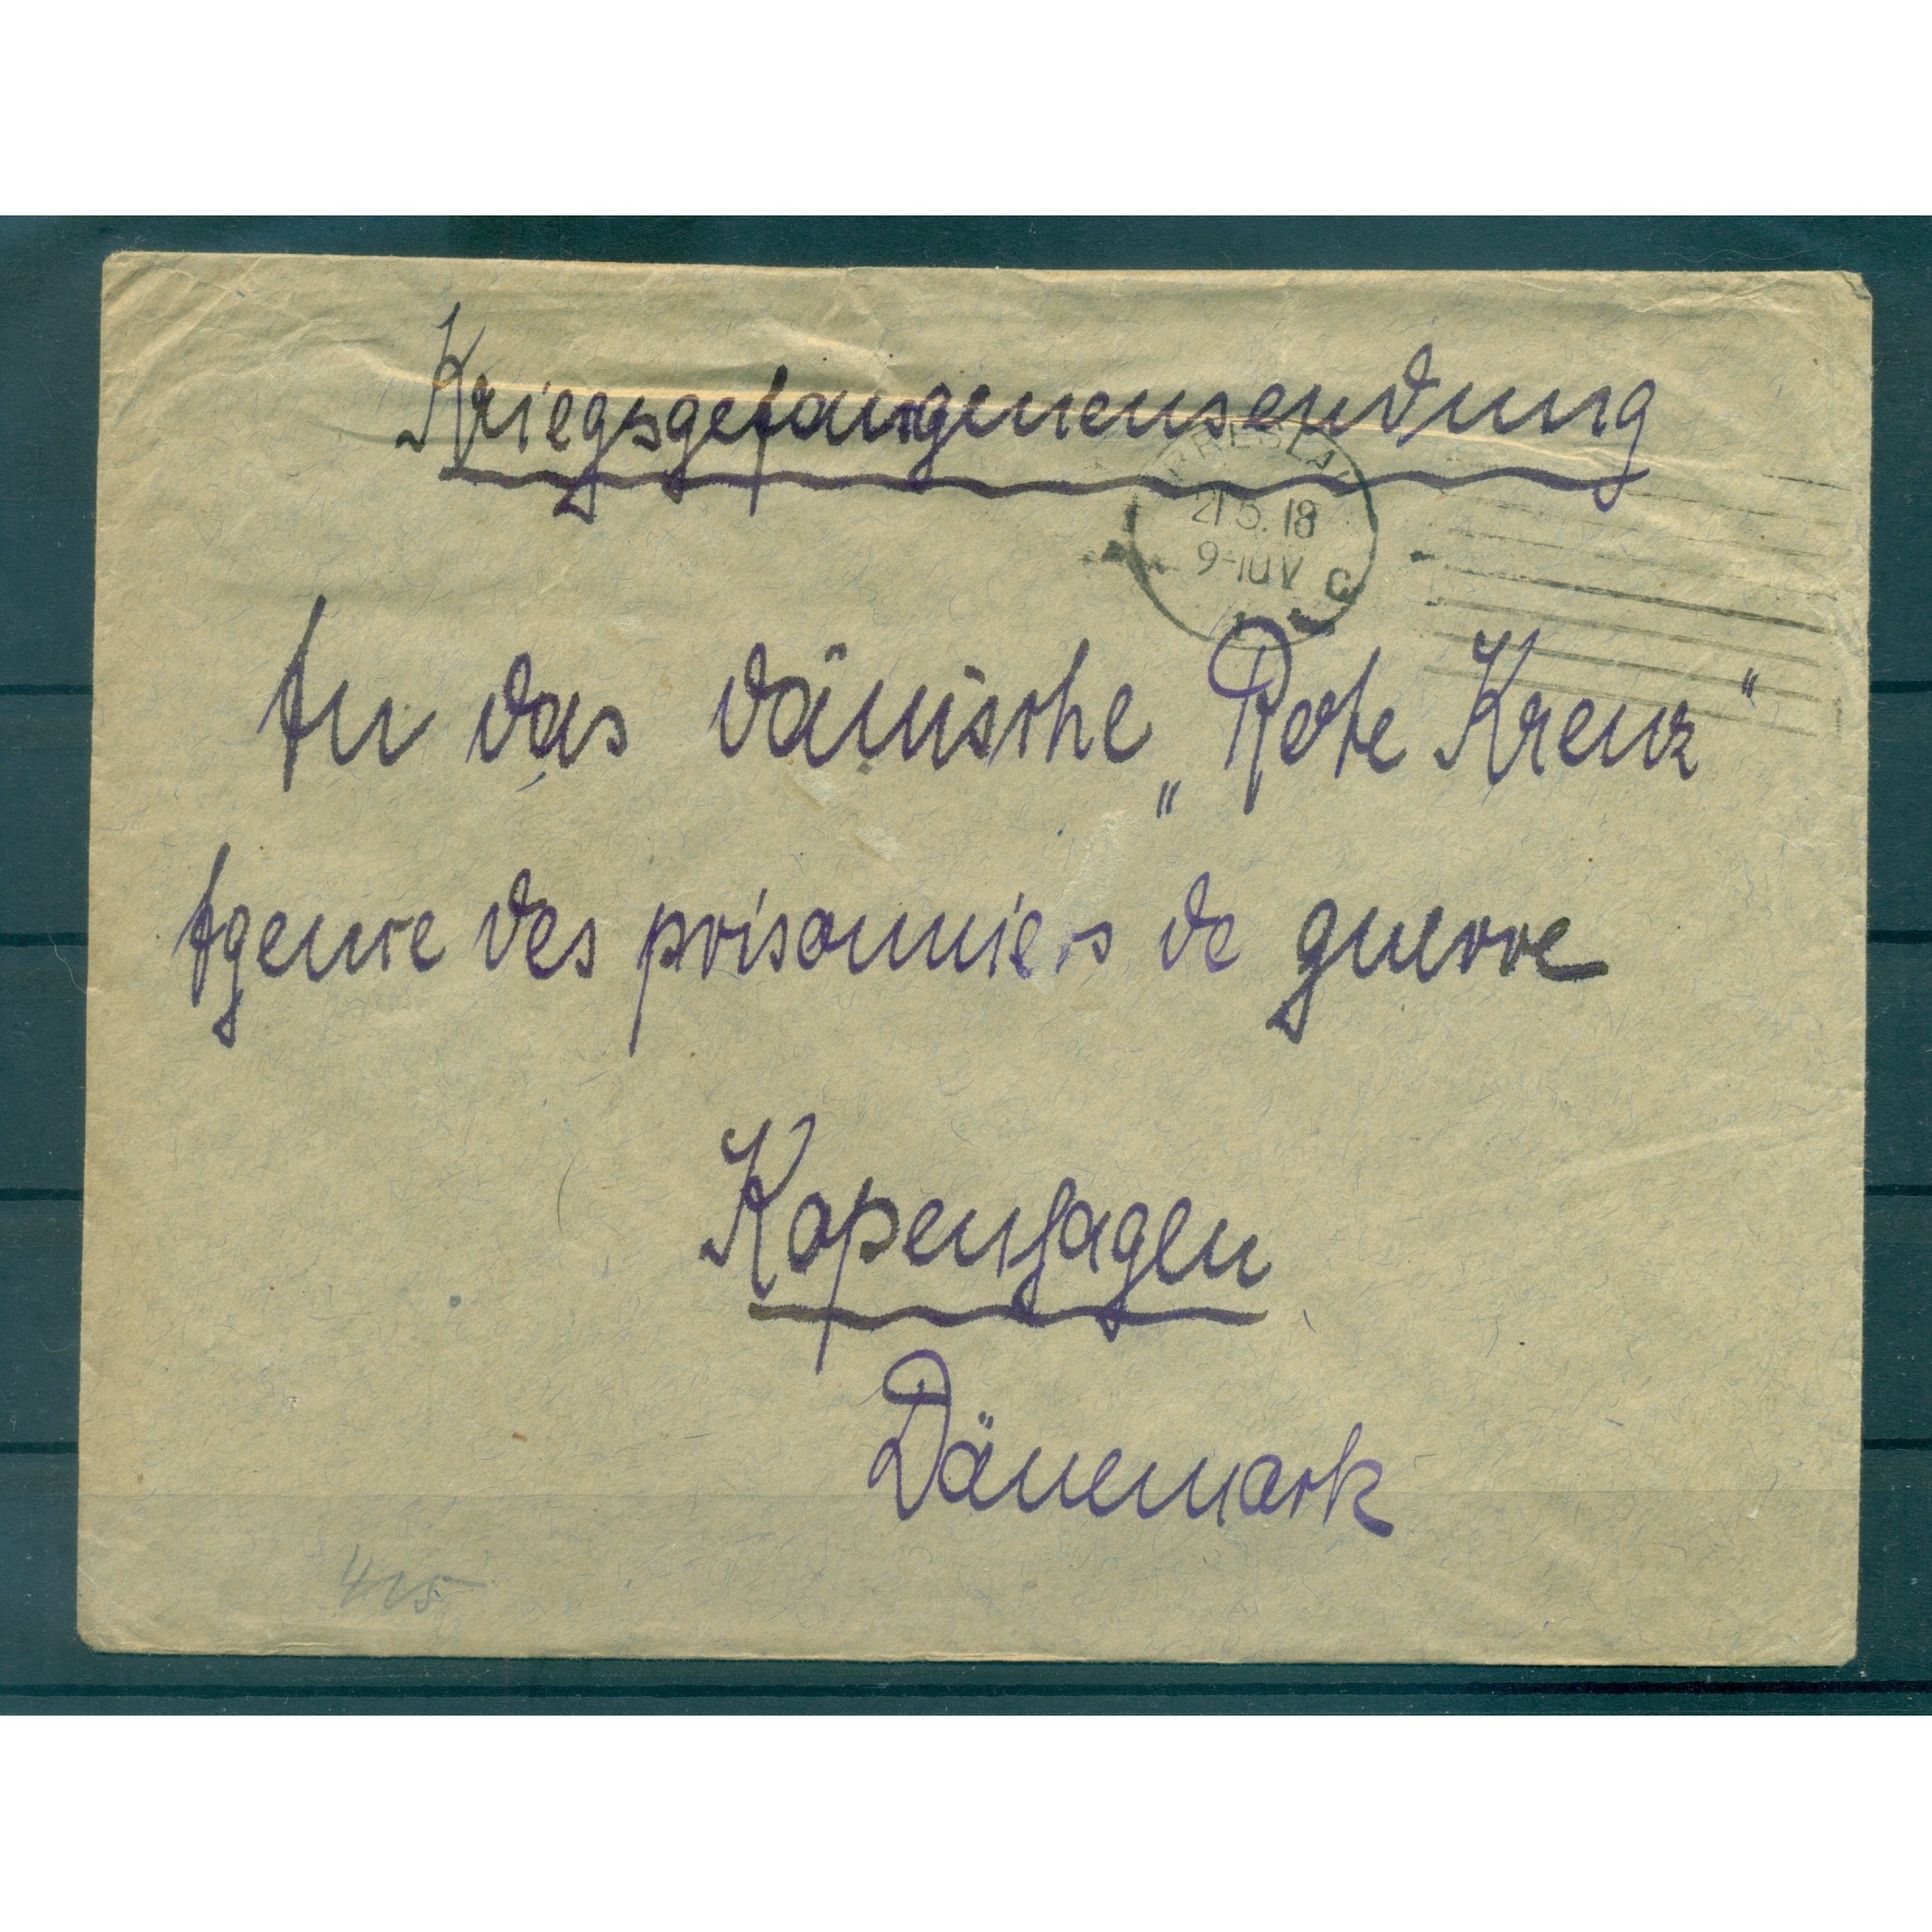 Kriegsgefangenensendung
BRESLAU
21.5.18
9-10 V
C
An das dänische „Rote Kreuz“
Agence des prisonniers de guerre
Kopenhagen
Dänemark